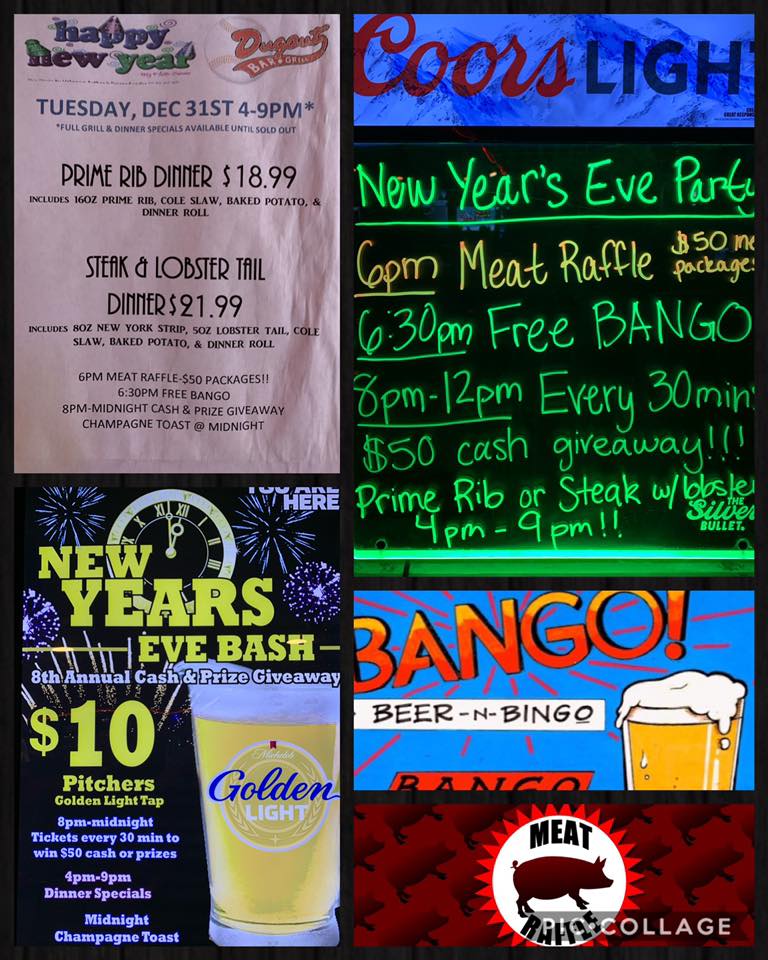 happy
new year
Dugout
BAR & GRILL
TUESDAY, DEC 31ST 4-9PM*
*FULL GRILL & DINNER SPECIALS AVAILABLE UNTIL SOLD OUT
PRIME RIB DINNER $18.99
INCLUDES 16OZ PRIME RIB, COLE SLAW, BAKED POTATO, &
DINNER ROLL
STEAK & LOBSTER TAIL
DINNER $21.99
INCLUDES 8OZ NEW YORK STRIP, 5OZ LOBSTER TAIL, COLE
SLAW, BAKED POTATO, & DINNER ROLL
6PM MEAT RAFFLE-$50 PACKAGES!!
6:30PM FREE BANGO
8PM-MIDNIGHT CASH & PRIZE GIVEAWAY
CHAMPAGNE TOAST @ MIDNIGHT
Coors LIGHT
New Year's Eve Party
6pm Meat Raffle $50 me
packages
6:30pm Free BANGO
8pm-12pm Every 30min
$50 cash giveaway!!!
Prime Rib or Steak w/ lobster
4pm-9pm!!
THE
Silver
BULLET.
YOU ARE
HERE
NEW
YEARS
EVE BASH
8th Annual Cash & Prize Giveaway
$10
Pitchers
Golden Light Tap
8pm-midnight
Tickets every 30 min to
win $50 cash or prizes
4pm-9pm
Dinner Specials
Midnight
Champagne Toast
Michelob
Golden
LIGHT
BANGO!
BEER-N-BINGO
BANGO
MEAT
RAFFLE
PIC COLLAGE